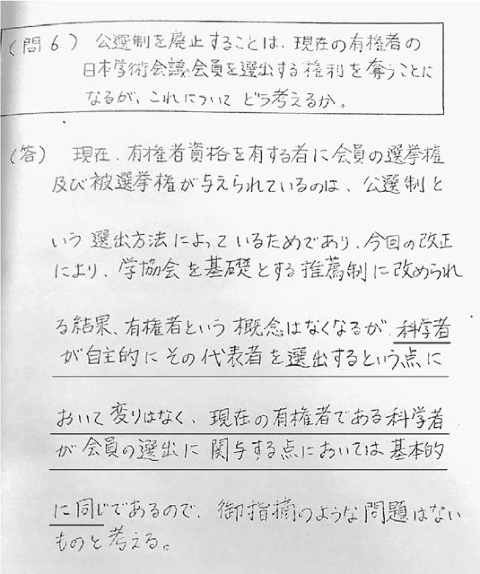 (問6) 公選制を廃止することは、現在の有権者の
日本学術会議会員を選出する権利を奪うことに
なるが、これについてどう考えるか。
(答) 現在、有権者資格を有する者に会員の選挙権
及び被選挙権が与えられているのは、公選制と
いう選出方法によっているためであり、今回の改正
により、学協会を基礎とする推薦制に改められ
る結果、有権者という概念はなくなるが、科学者
が自主的にその代表者を選出するという点に
おいて変りはなく、現在の有権者である科学者
が会員の選出に関与する点においては基本的
に同じであるので、御指摘のような問題はない
ものと考える。